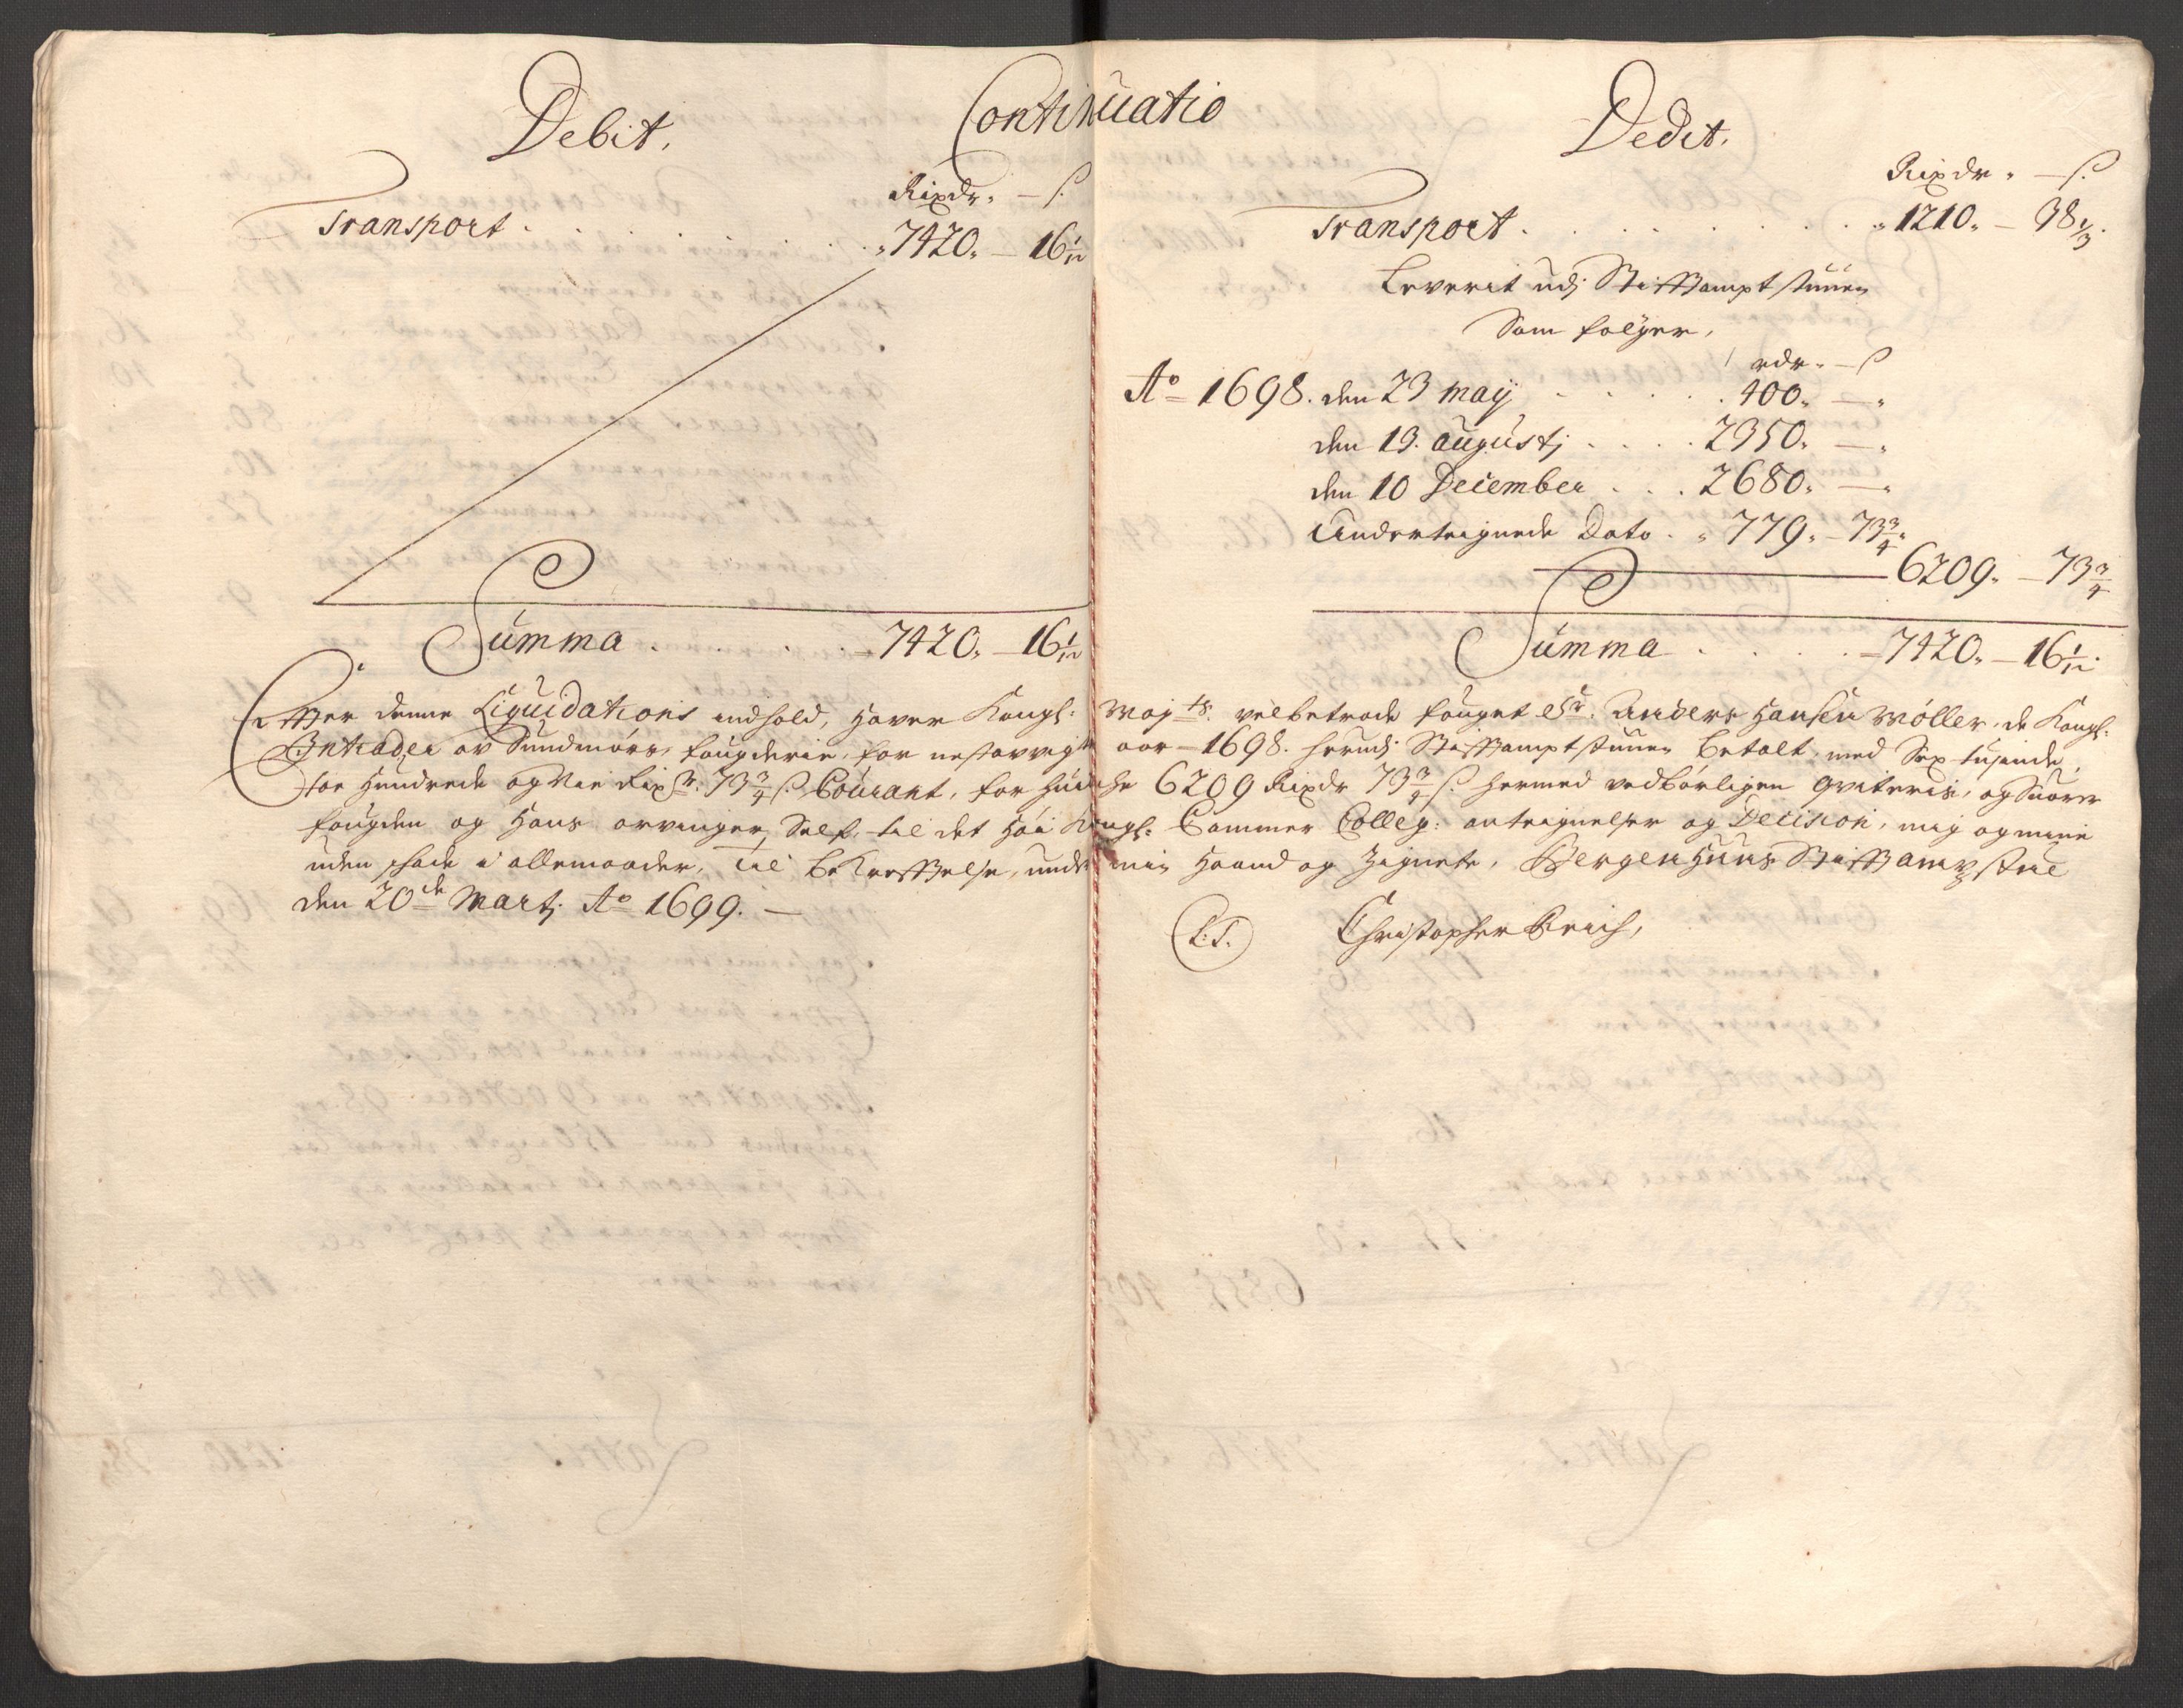 Continuatio
Debit.
Rixdr. – ß.
Transport . . . . . . . . 7420. – 16 1/12
Summa . . . . . 7420. – 16 1/12
Dedit.
Rixdr. – ß.
Transport . . . . . . . . 1210. – 38 1/3.
Leverit udj Stifftampt stuuen
Som følger,
rdr. – ß
Ao 1698. den 23 maij . . . . . 400. –
den 13. augustj . . . . 2350. –
den 10 December . . . 2680. –
Undertegnede Dato . 779. – 73 3/4
6209. – 73 3/4
Summa . . . . . 7420. – 16 1/12.
Efter denne Liquidations indhold, haver Kongl: Maj ts. velbetrode fouget Sr. Anders Hansen Møller, de Kongl:
Intrader av Sundmørs fougderie, for nestafvigte aar 1698. herudj Stifftamptstuuen betalt med Sex tusende,
toe Hundrede og Nie Rixdr: 73 3/4 ß. Courant, for huilche 6209 Rixdr 73 3/4 ß. hermed vedbørligen qviteris, og Suarer
fougden og Hans arvinger Self til det Høi Kongl: Cammer Colleg: antegnelser og Decision, mig og mine
uden schade i allemaader, Til bekrefftelse, under min Haand og Zignete, Bergenhuus Stifftampts stue
den 20de Martj Ao 1699. –
L:S. Christopher Brich,